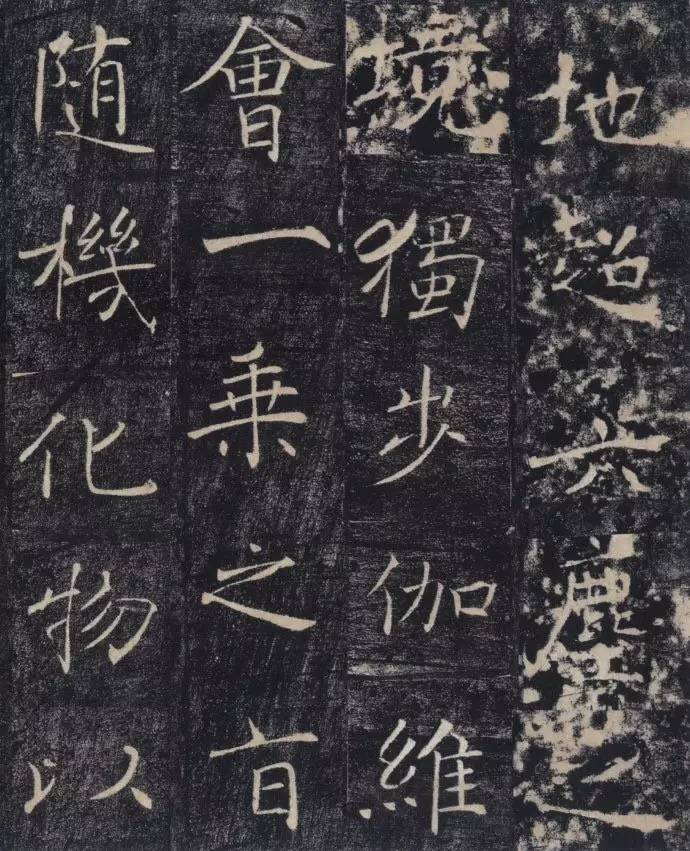 地超六塵之
境獨步伽維
會一乘之旨
随機化物以